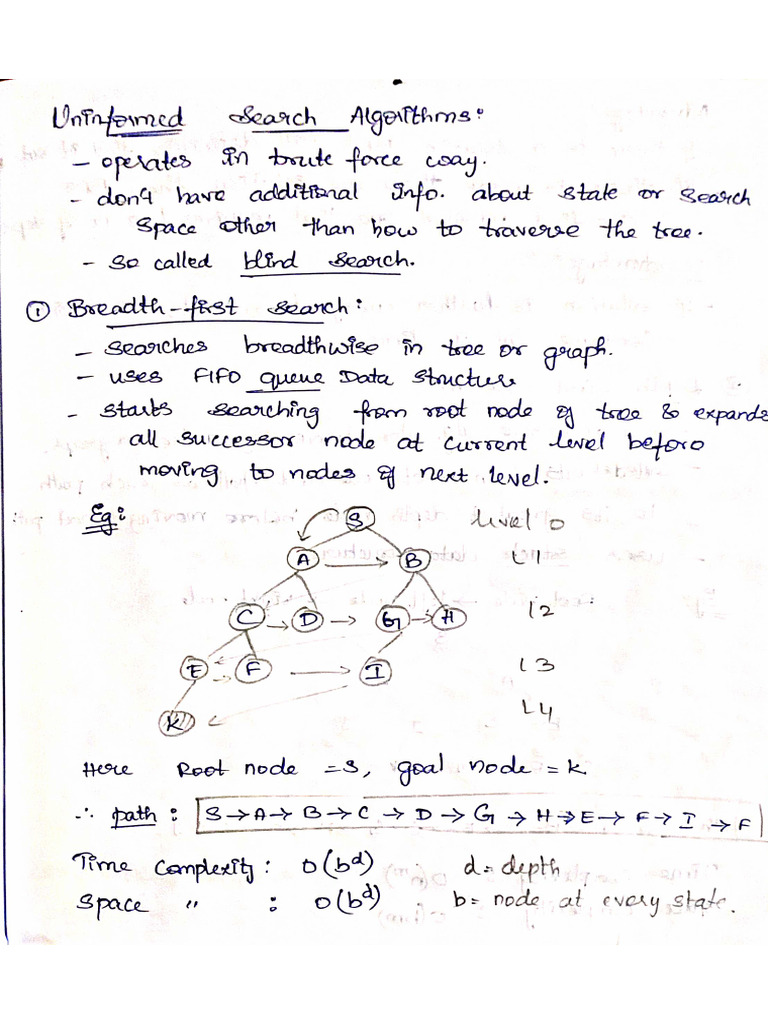 Uninformed Search Algorithms:
- operates in brute force way.
- don't have additional info. about state or search
space other than how to traverse the tree.
- so called blind search.
① Breadth-first search:
- searches breadthwise in tree or graph.
- uses FIFO queue Data structure
- starts searching from root node of tree & expands
all successor node at current level before
moving to nodes of next level.
Eg: S level 0
A B L1
C D G H L2
E F I L3
K L4
Here Root node = S, goal node = K
∴ path: S→A→B→C→D→G→H→E→F→I→F
Time Complexity: O(b^d) d = depth
Space " : O(b^d) b = node at every state.